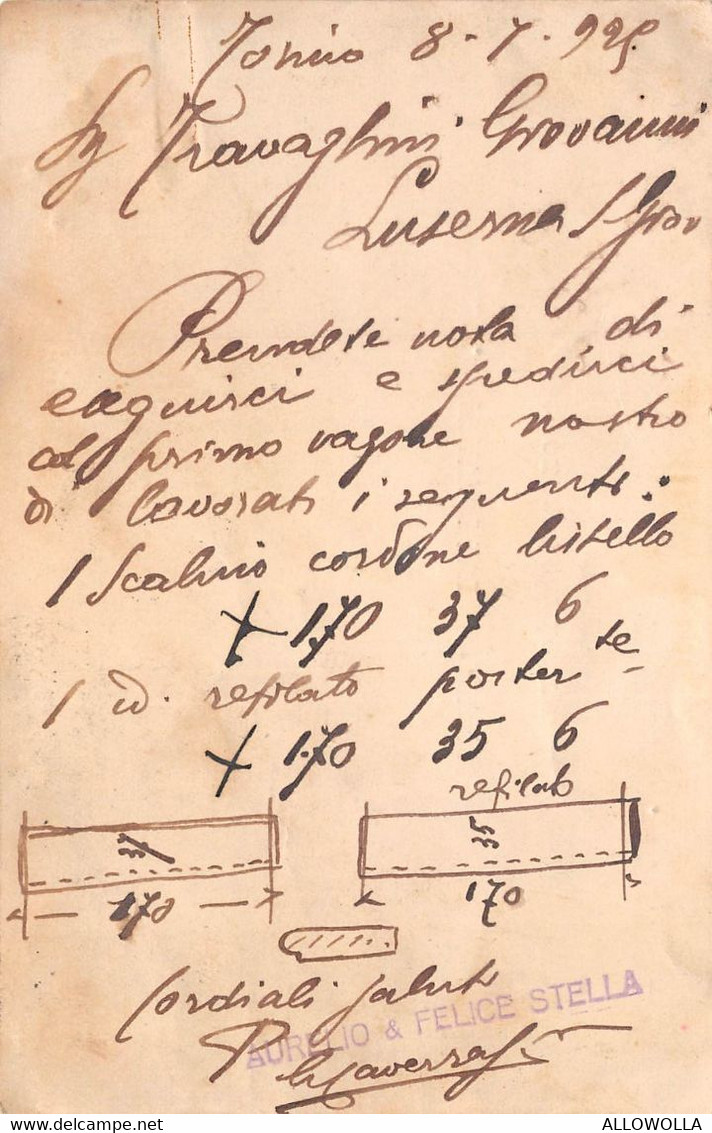 Torino 8-7-925
Sig Travaglini Giovanni
Luserna S Giov
Prendete nota di
eseguirci e spedirci
col primo vagone nostro
di lavorati i seguenti:
1 Scalino cordone listello
X 1.70 37 6
1 id. refilato poster te
X 1.70 35 6
refilato
35
170
170
Cordiali saluti
AURELIO & FELICE STELLA
P
ALLOWOLLA